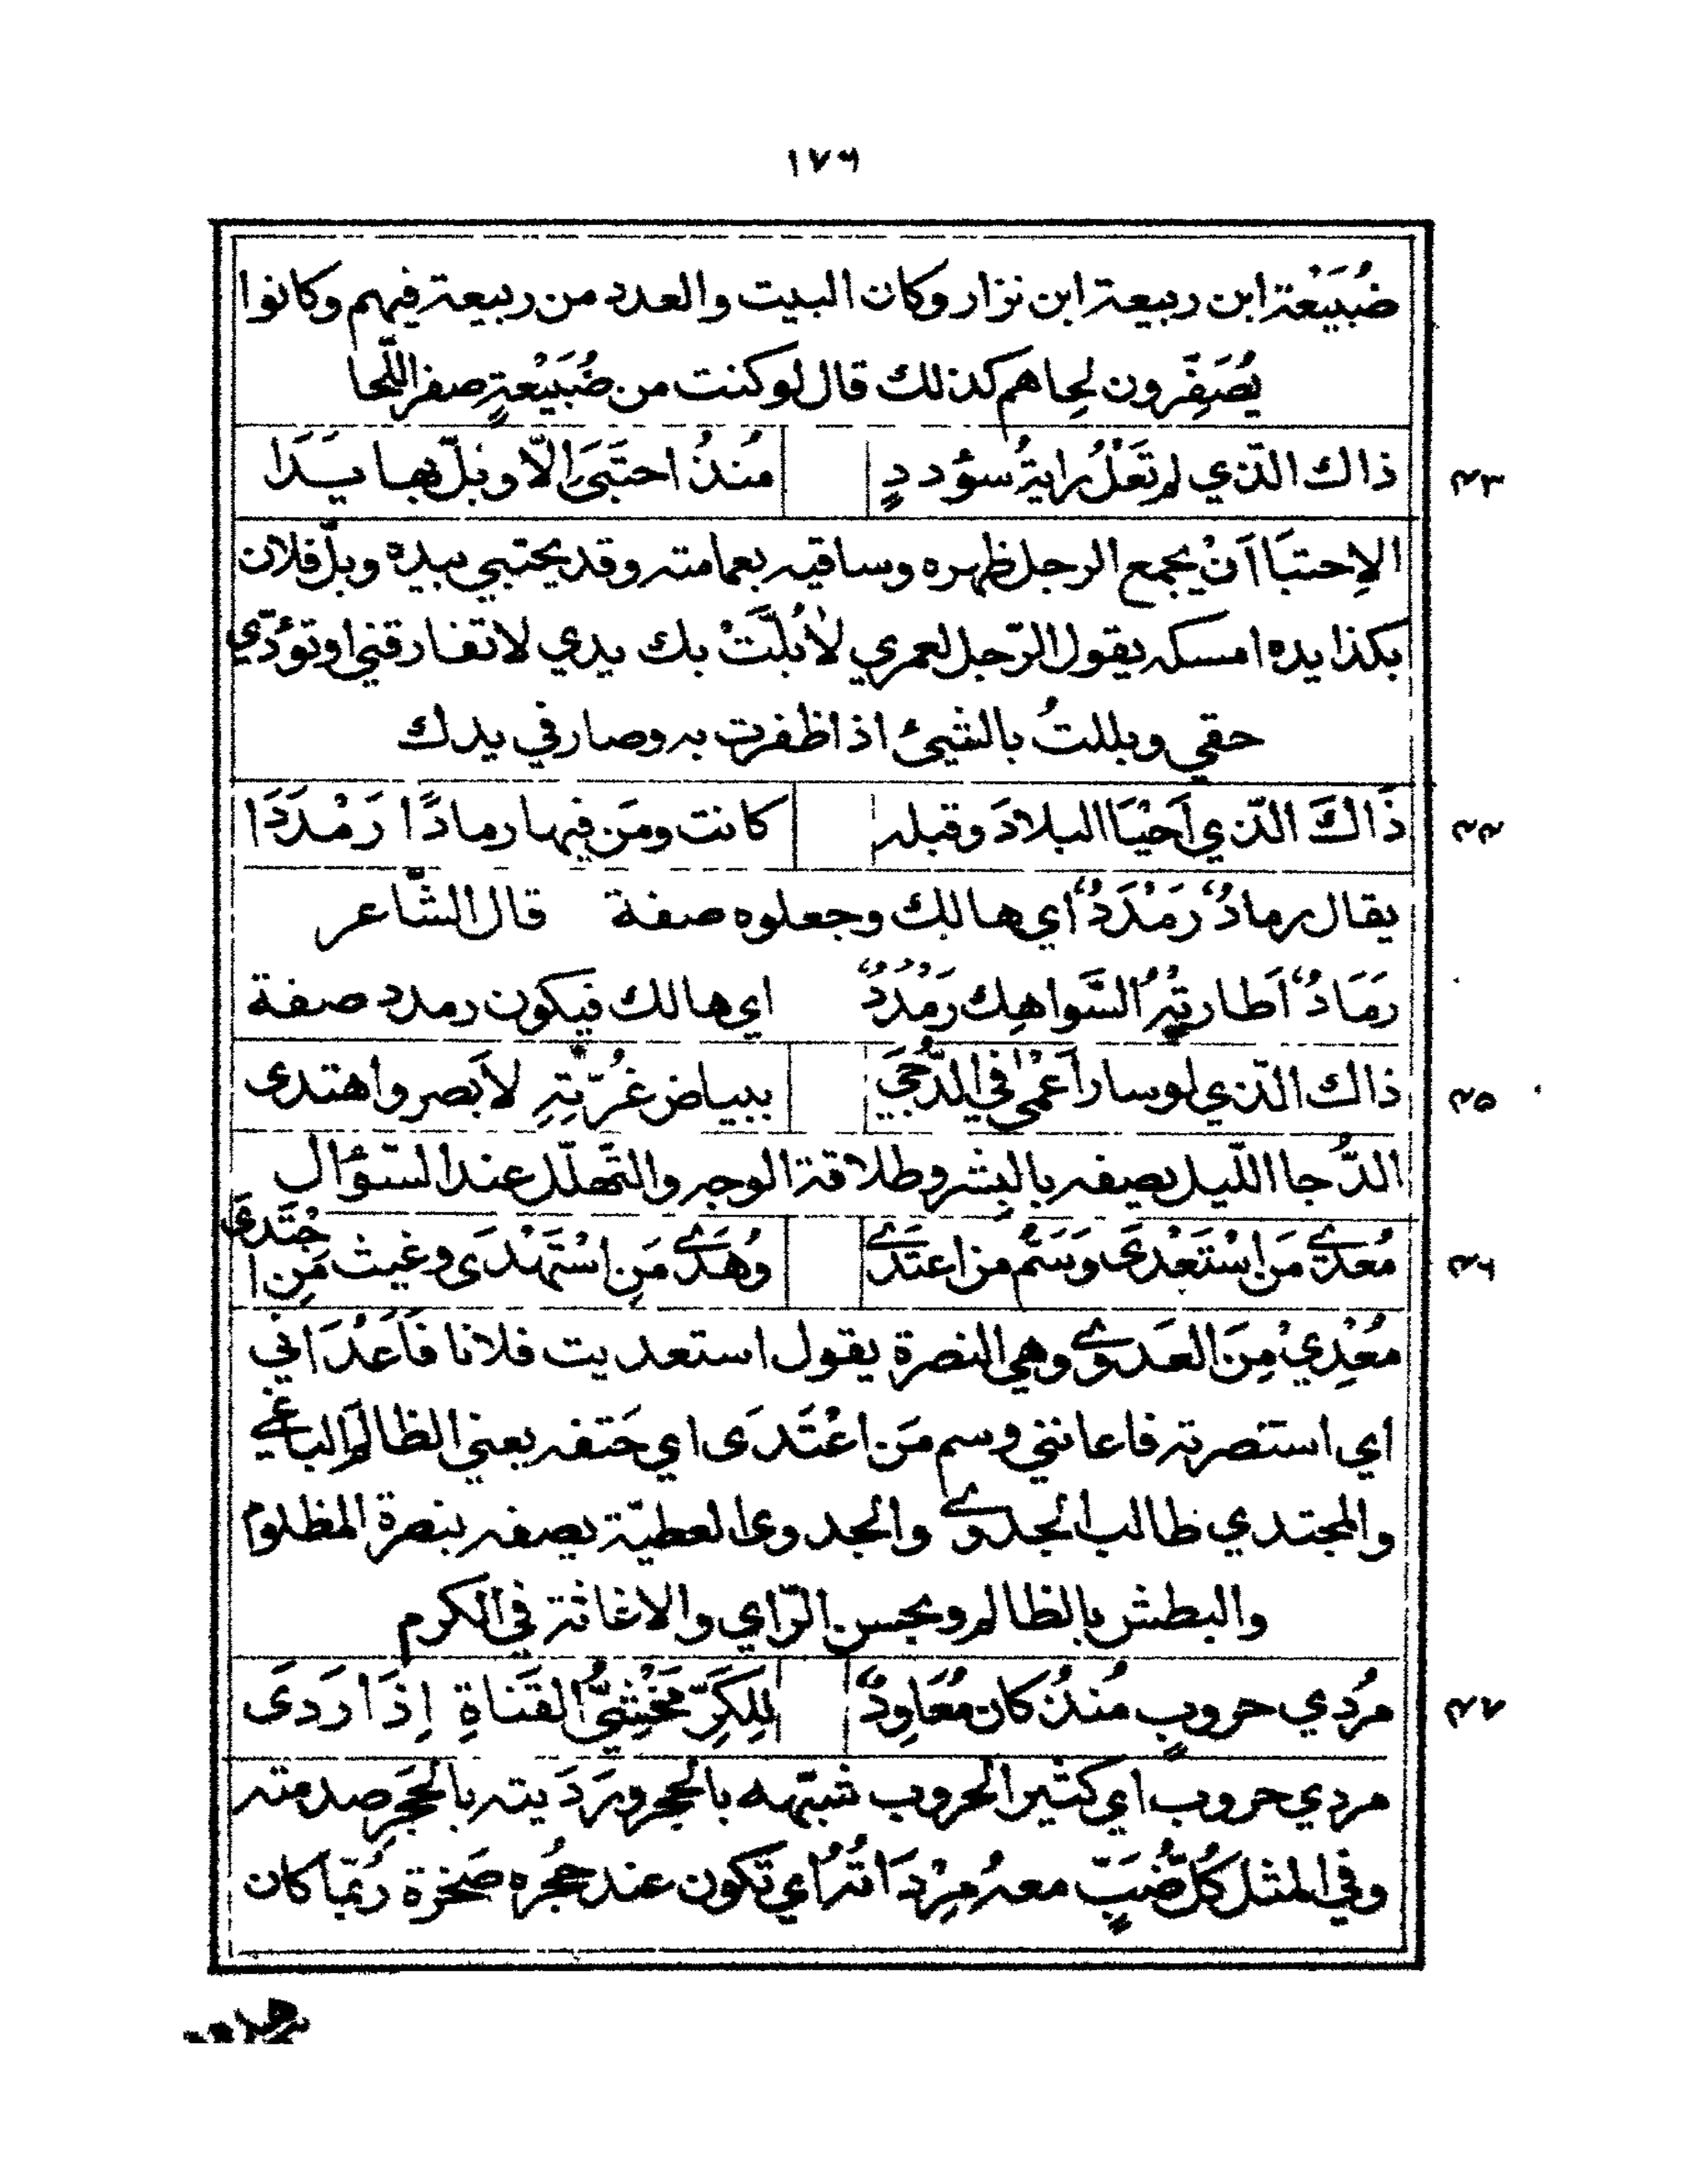 ١٧٦
ضُبَيْعَة ابن ربيعة ابن نزار وكان البيت والعدد من ربيعة فيهم وكانوا
يُصَفِّرون لحاهم كذلك قال لو كنت من ضُبَيْعةٍ صفر اللّحا
٤٣ ذاك الّذي لم تَعْلُ رايةُ سؤددٍ مُنذُ احتَبَى الّا وبلّ بها يَدَا
الإحتبَا اَنْ يجمع الرجل ظهره وساقيه بعمامته وقد يحتبي بيده وبلّ فلان
بكذا يده امسكه يقول الرّجل لعمري لأبُلَّتْ بك يدي لا تفارقني او تؤدّي
حقي وبللتُ بالشيئ اذا ظفرت به وصار في يدك
٤٤ ذَاكَ الّذي اَحْيَا البلادَ وقبله كانت ومَن فيها رمادًا رَمْدَدَا
يقال رمادٌ رَمْدَدٌ اي هالك وجعلوه صفة قال الشّاعر
رَمَادٌ اَطارتهُ السَّواهِك رَمْدَدٌ اي هالك فيكون رمدد صفة
٤٥ ذاك الّذي لو سار اَعْمٰى في الدُّجَى ببياض غُرّتِهِ لاَبصر واهتدى
الدُّجا اللّيل يصفه بالبِشر وطلاقة الوجه والتّهلّل عند السّؤال
٤٦ مُعدَى مَن اسْتَعْدَى وَسَمُّ مَن اعتَدَى وُهَدَى مَنِ اسْتَهْدَى وغيث مَنِ اجْتَدى
مُعْدِيْ مِنَ العَدوى وهي النصرة يقول استعديت فلانا فَاَعْدَاني
اي استنصرته فاعانني وسم مَن اعْتَدَى اي حَتفه يعني الظالم الباغي
والمجتدي طالب الجدوى والجدوى العطيّة يصفه بنصرة المظلوم
والبطش بالظالم وبحسن الرّاي والاغاثة في الكرم
٤٧ مردي حروبٍ مُنذُ كان مُعَاوِدٌ لِلكَرِّ مَخْشِيُّ القَناةِ إذَا رَدى
مردي حروب اي كثير الحروب شبّهه بالحجر وَرَدَيته بالحَجَرِ صدمته
وفي المثل كُلّ ضُبٍّ معهُ مِرْدَاتُهُ اي تكون عند جُحُره صَخرة رُبّما كان